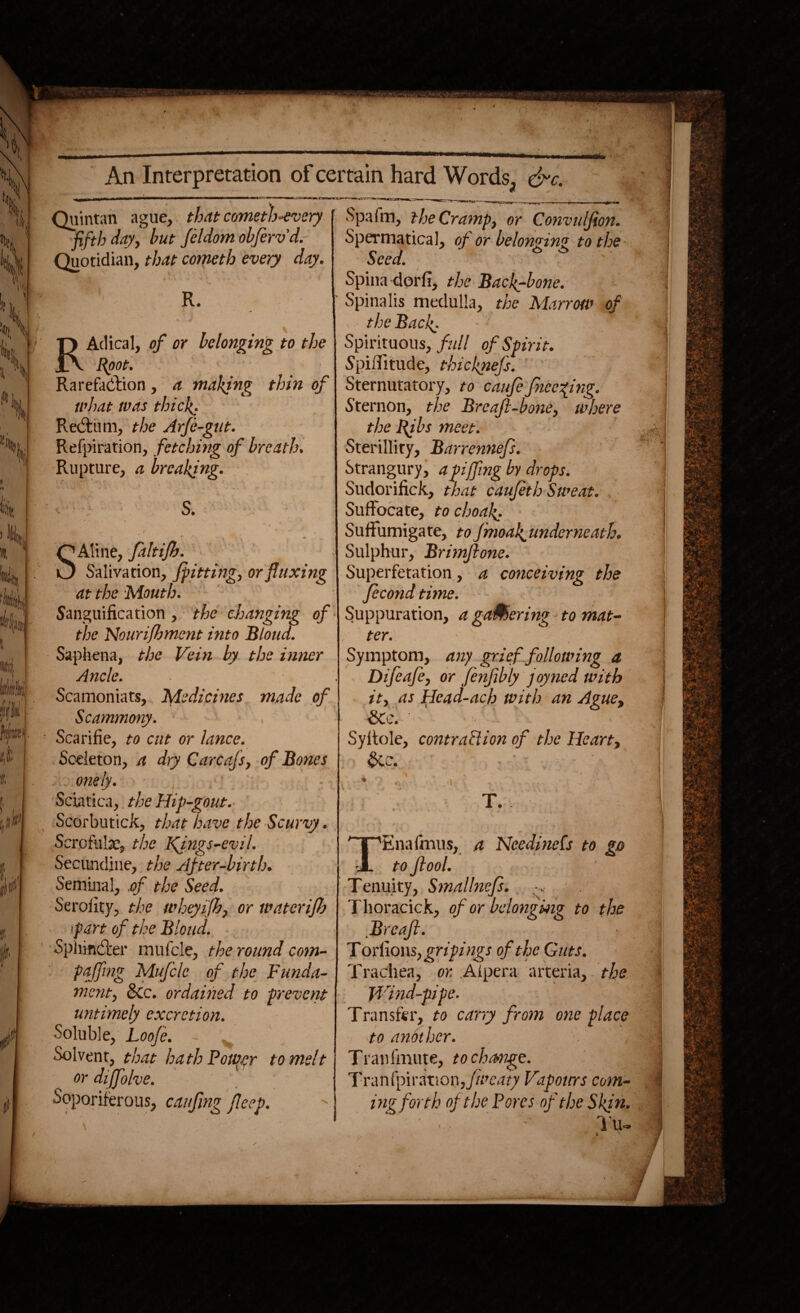 An Interpretation of certain hard Words, &c.
Quintan ague, that cometh every
fifth day, but ſeldom obſerv'd.
Quotidian, that cometh every day.
R.
RAdical, of or belonging to the
Root.
Rarefaction, a making thin of
what was thick.
Rectum, the Arſe-gut.
Reſpiration, fetching of breath.
Rupture, a breaking.
S.
SAline, ſaltiſh.
Salivation, ſpitting, or fluxing
at the Mouth.
Sanguification, the changing of
the Nouriſhment into Bloud.
Saphena, the Vein by the inner
Ancle.
Scamoniats, Medicines made of
Scammony.
Scarifie, to cut or lance.
Sceleton, a dry Carcaſs, of Bones
onely.
Sciatica, the Hip-gout.
Scorbutick, that have the Scurvy.
Scrofulæ, the Kings-evil.
Secundine, the After-birth.
Seminal, of the Seed.
Seroſity, the wheyiſh, or wateriſh
part of the Bloud.
Sphincter muſcle, the round com-
paſſing Muſcle of the Funda-
ment, &c. ordained to prevent
untimely excretion.
Soluble, Looſe.
Solvent, that hath Power to melt
or diſſolve.
Soporiferous, cauſing ſleep.
Spaſm, the Cramp, or Convulſion.
Spermatical, of or belonging to the
Seed.
Spina dorſi, the Back-bone.
Spinalis medulla, the Marrow of
the Back.
Spirituous, full of Spirit.
Spiſſitude, thickneſs.
Sternutatory, to cauſe ſneezing.
Sternon, the Breaſt-bone, where
the Ribs meet.
Sterillity, Barrenneſs.
Strangury, a piſſing by drops.
Sudorifick, that cauſeth Sweat.
Suffocate, to choak.
Suffumigate, to ſmoak underneath.
Sulphur, Brimſtone.
Superfetation, a conceiving the
ſecond time.
Suppuration, a gathering to mat-
ter.
Symptom, any grief following a
Diſeaſe, or ſenſibly joyned with
it, as Head-ach with an Ague,
&c.
Syſtole, contraction of the Heart,
&c.
T.
TEnaſmus, a Needineſs to go
to ſtool.
Tenuity, Smallneſs.
Thoracick, of or belonging to the
Breaſt.
Torſions, gripings of the Guts.
Trachea, or Aſpera arteria, the
Wind-pipe.
Transfer, to carry from one place
to another.
Tranſmute, to change.
Tranſpiration, ſweaty Vapours com-
ing forth of the Pores of the Skin.
Tu-